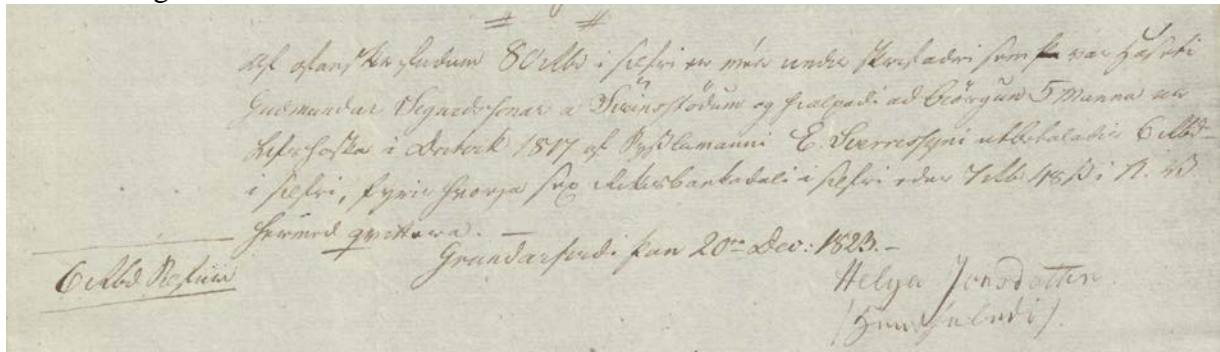 Af ofanskrifudum 80 rbd i silfri er mér under skrifadri sem var Háseti
Gudmundar Sigurdssonar a Sveinsstödum og hialpadi ad biörgun 5 Manna ur
Lifsháska i October 1817 af Sysslumanni E. Sverressyni utbetaladir 6 rbd
i silfri, fyrir hvorja sex rikisbankadali i silfri edur 7 rbd 48 s i N. V.
hérmed qvittera. –
Grundarfirdi þan 20ta Dec: 1823. –
6 rbd Rede
Helga Jonsdotter
(Handsaladi)